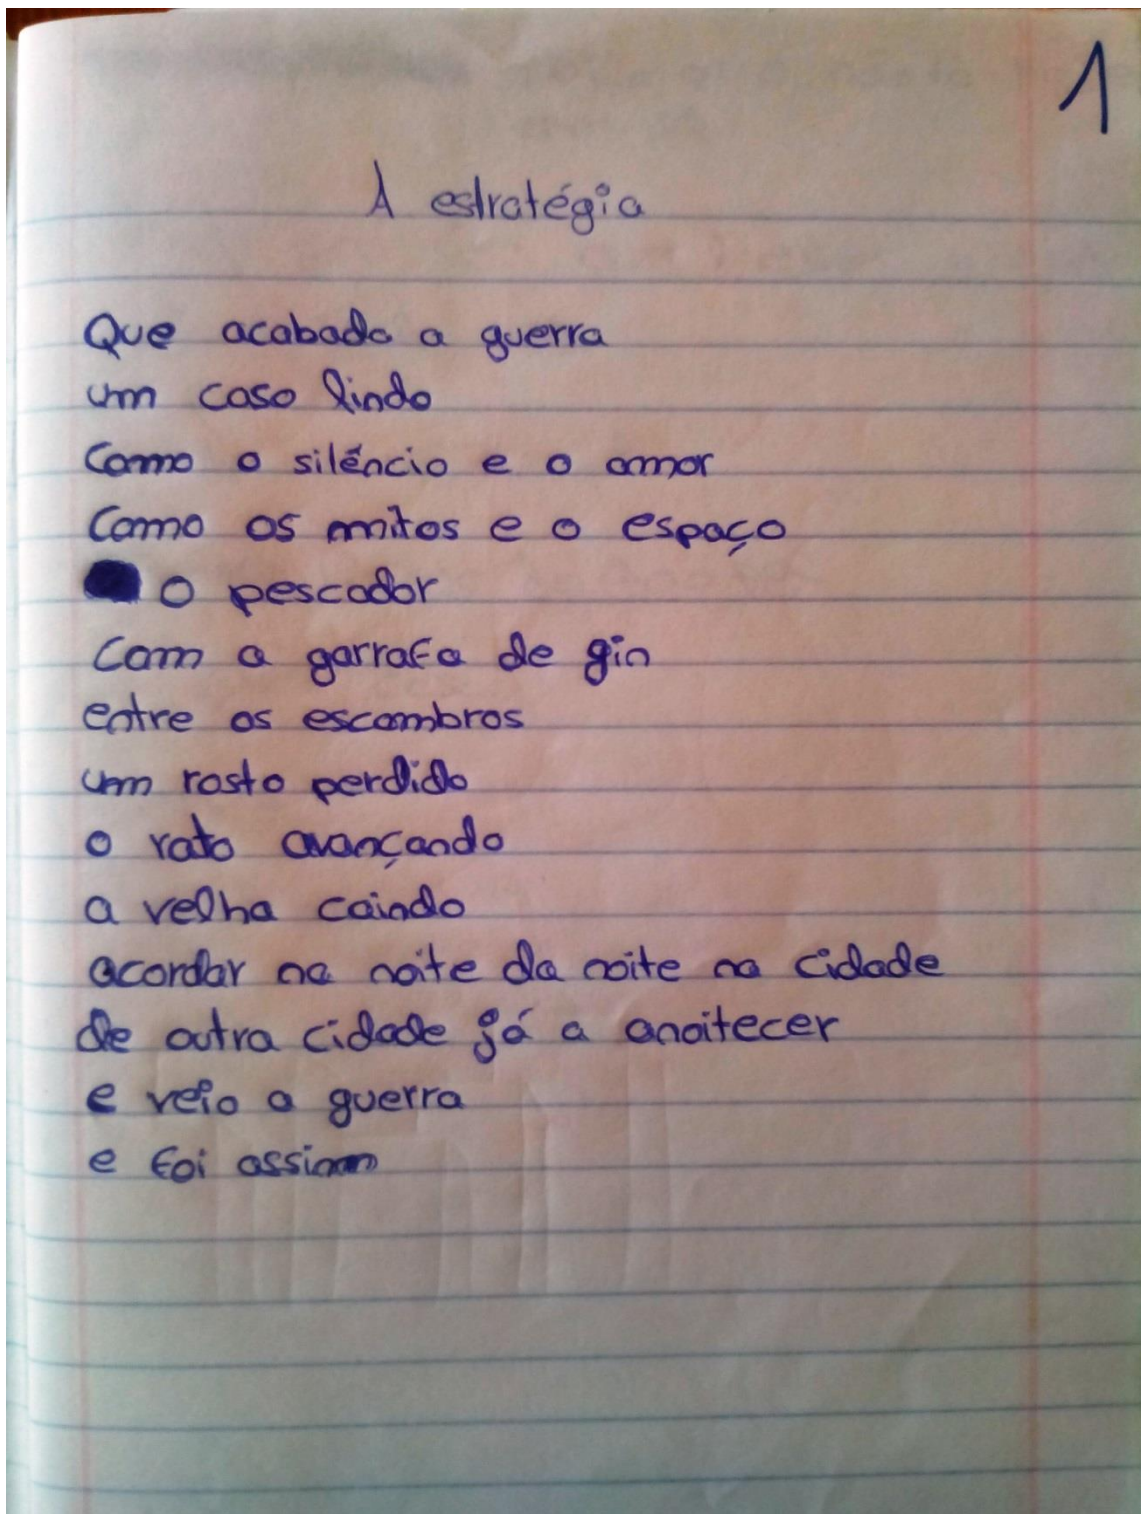 1
A estratégia
Que acabada a guerra
um caso lindo
Como o silêncio e o amor
Como os mitos e o espaço
o pescador
Com a garrafa de gin
entre os escombros
um rosto perdido
o rato avançando
a velha caindo
acordar na noite da noite na cidade
de outra cidade já a anoitecer
e veio a guerra
e foi assim